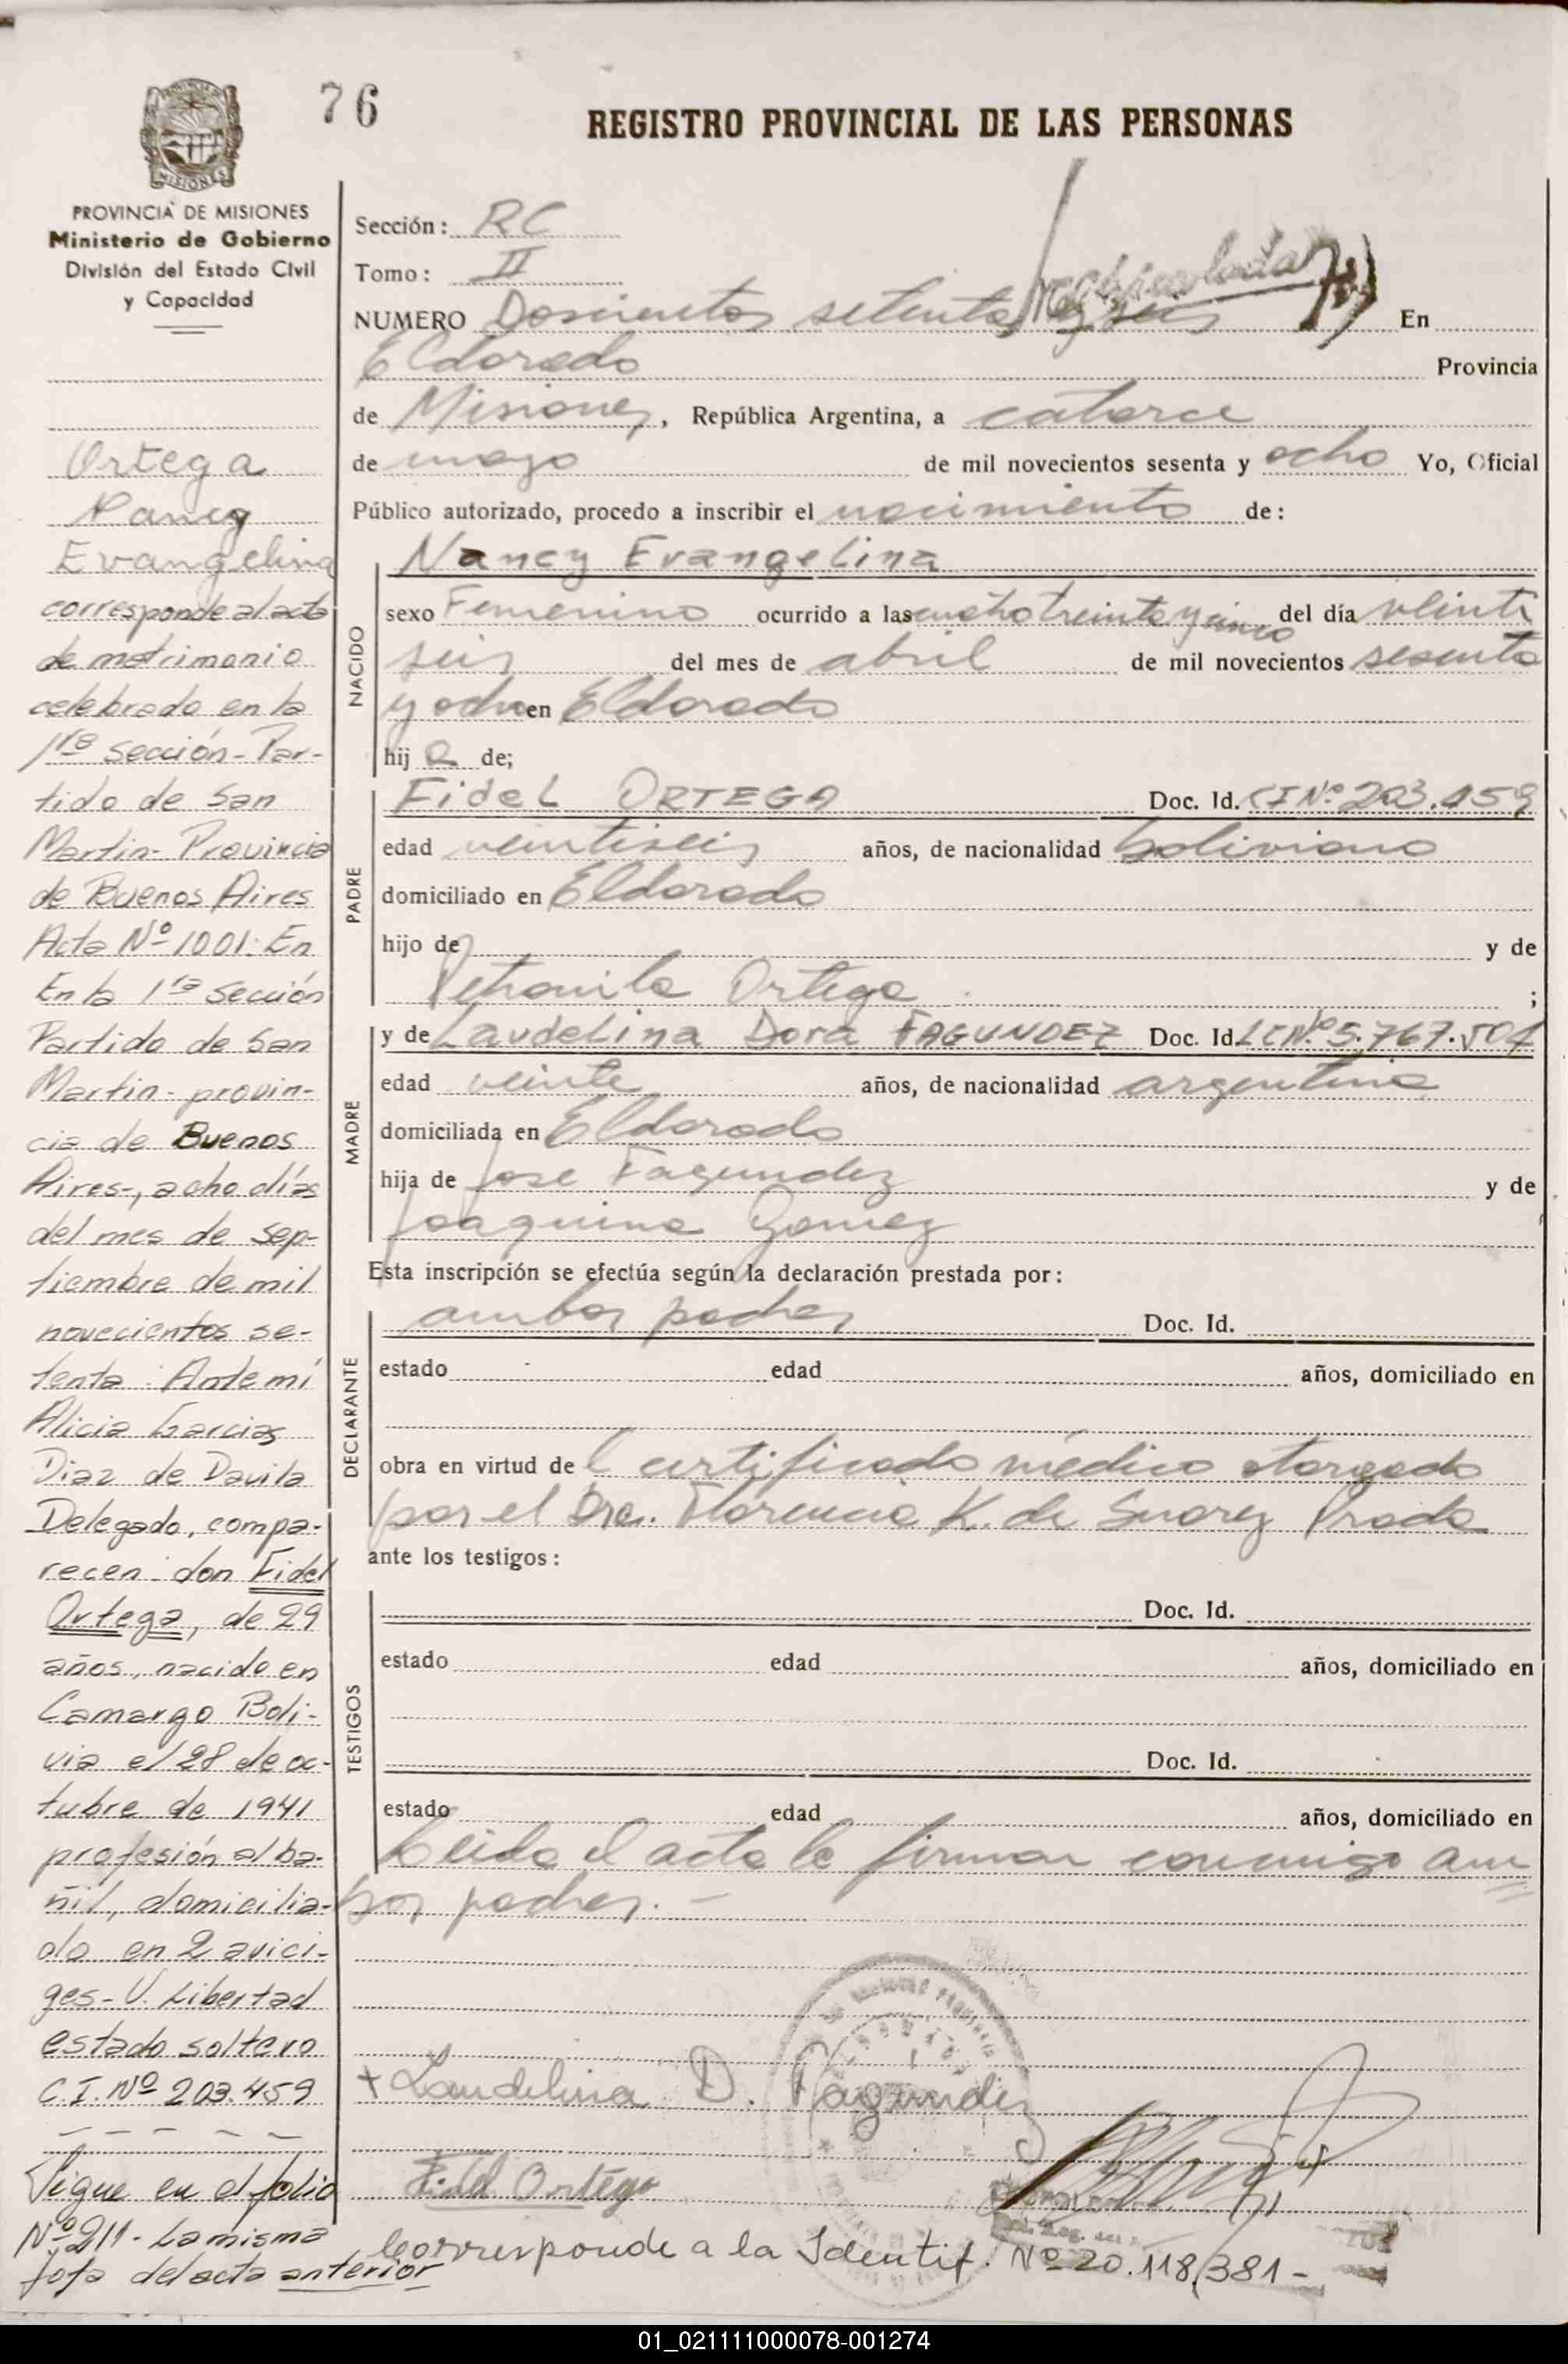 76
REGISTRO PROVINCIAL DE LAS PERSONAS
MISIONES
PROVINCIA DE MISIONES
Ministerio de Gobierno
División del Estado Civil
y Capacidad
Ortega
Nancy
Evangelina
corresponde al acta
de matrimonio
celebrado en la
1ra sección - Par-
tido de San
Martin - Provincia
de Buenos Aires
Acta Nº 1001: En
En la 1ra sección
Partido de San
Martin - provin-
cia de Buenos
Aires-, a ocho días
del mes de sep-
tiembre de mil
novecientos se-
tenta : Ante mí
Alicia Garcias
Diaz de Davila
Delegado, compa-
recen : don Fidel
Ortega, de 29
años, nacido en
Camargo Boli-
via el 28 de oc-
tubre de 1941
profesión alba-
ñil, domicilia-
do en
V. Libertad
estado soltero
C.I. Nº 203.459
Sigue en el folio
Nº 211 - La misma
foja del acta anterior
Sección: RC
Tomo: II
NUMERO Doscientos setenta y seis En
Eldorado Provincia
de Misiones, República Argentina, a catorce
de mayo de mil novecientos sesenta y ocho Yo, Oficial
Público autorizado, procedo a inscribir el nacimiento de:
NACIDO
Nancy Evangelina
sexo Femenino ocurrido a las treinta y cinco del día veinti
seis del mes de abril de mil novecientos sesenta
y ocho en Eldorado
hija de;
PADRE
Fidel ORTEGA Doc. Id. CI Nº 203.459
edad veintiseis años, de nacionalidad boliviano
domiciliado en Eldorado
hijo de y de
Petronila Ortega ;
MADRE
y de Laudelina Dora FAGUNDEZ Doc. Id. LC Nº 5.767.504
edad veinte años, de nacionalidad argentina
domiciliada en Eldorado
hija de Jose Fagundez y de
Joaquina Gomez
Esta inscripción se efectúa según la declaración prestada por:
DECLARANTE
ambos padres Doc. Id.
estado edad años, domiciliado en
obra en virtud del certificado médico otorgado
por el Dra. Florencia K. de Suarez Prado
ante los testigos:
TESTIGOS
Doc. Id.
estado edad años, domiciliado en
Doc. Id.
estado edad años, domiciliado en
Leida el acta la firman conmigo am
bos padres. -
+ Laudelina D. Fagundez
Fidel Ortega
Corresponde a la Identif. Nº 20.118.381 -
01_021111000078-001274